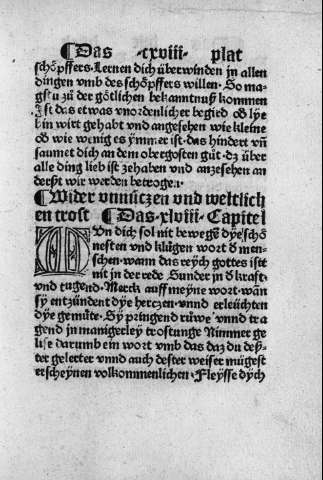 ¶Das ·cxviii· plat
schöpffers. Lernen dich überwinden in allen
dingen vmb des schöpffers willen. So ma-
gstu zů der götlichen bekanntnuß kommen
Ist das etwas vnordenlicher begird ob lye
b in wirt gehabt vnd angesehen wie kleine
ob wie wenig es ymmer ist. das hindert vñ
saumet dich an dem obergosten gůt. dz über
alle ding lieb ist zehaben vnd anzesehen an
derst wir werden betrogen.
¶Wider vnnützen vnd weltlich
en trost ¶Das .xlviii. Capitel
Vn dich sol nit bewegē dye schö
nesten vnd klůgen wort d̄ men-
schen. wann das reych gottes ist e
nit in der rede Sunder in d̄ kraft.
vnd tugend. Merck auff meyne wort. wañ
sy entzündent dye hertzen. vnnd erleüchten
dye gemüte. Sy pringend rüwe vnnd tra
gend jn manigerley trostunge Nimmer ge
lise darumb ein wort vmb das daz du deß
ter gelerter vnnd auch dester weiser mügest
erscheynen volkommenlichen. Fleysse dych